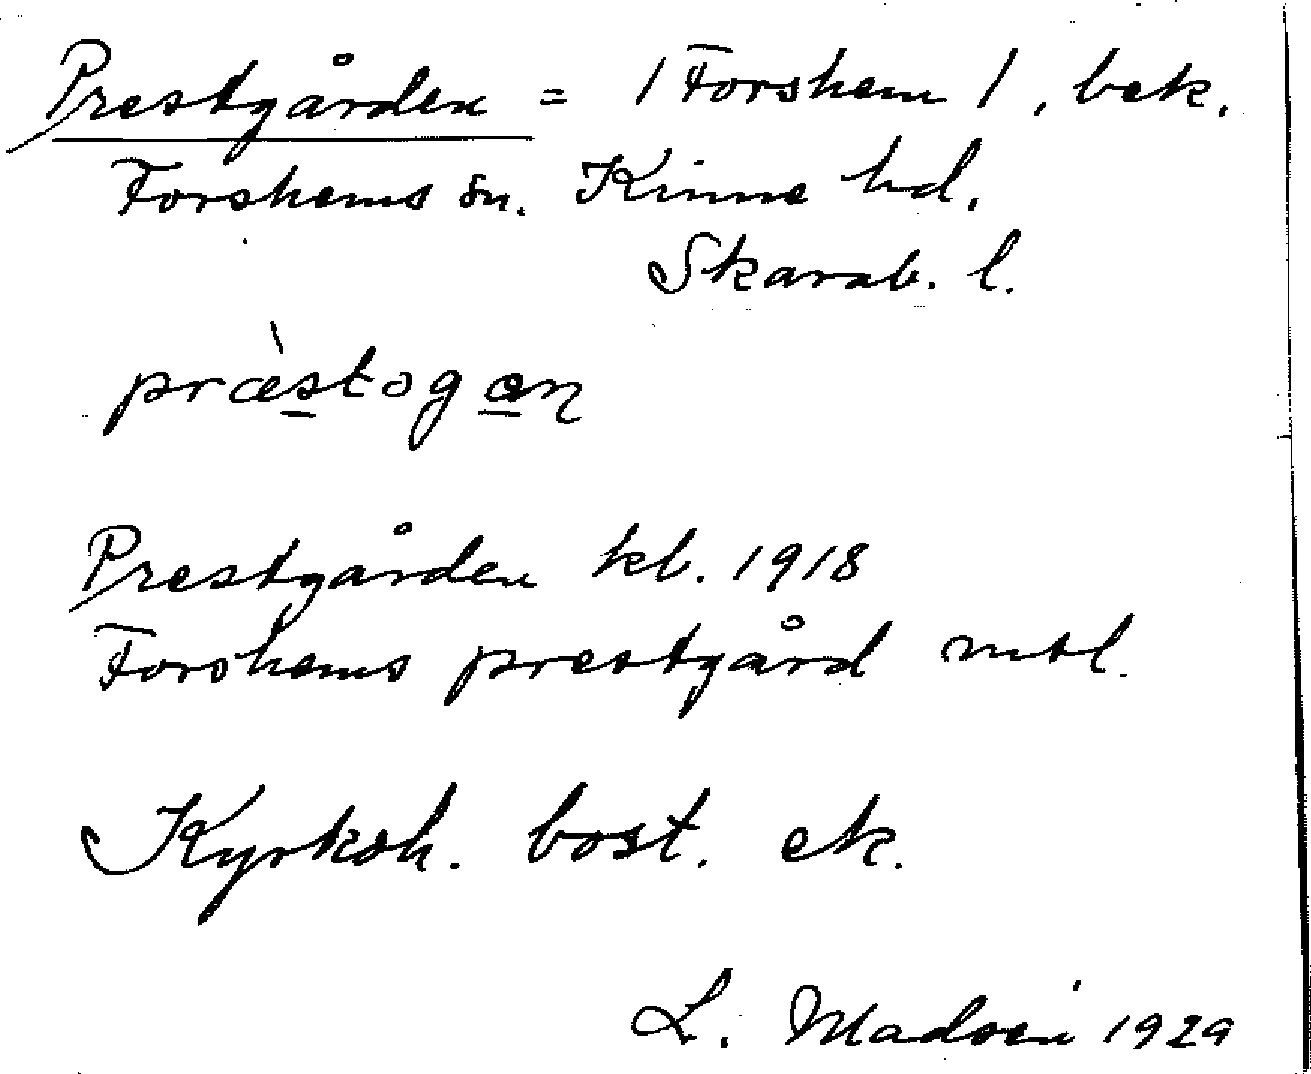 Prestgården = / Forshem /, bek.
Forshems sn. Kinne hd.
Skarab. l.
præ̀stogan
Prestgården kb. 1918
Forshems prestgård mtl.
Kyrkoh. bost. ek.
L. Madsén 1929